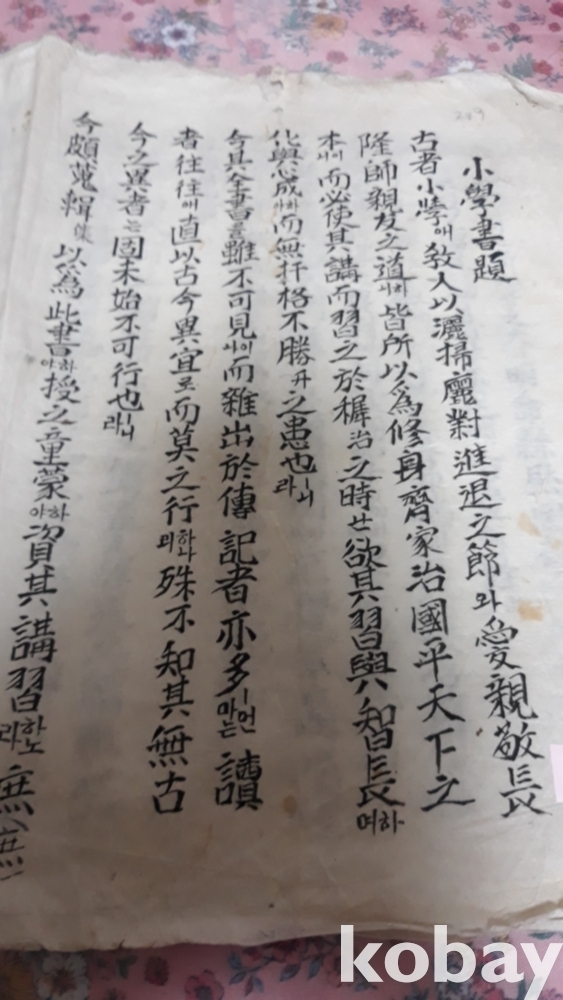 209
小學書題
古者小學애敎人以灑掃應對進退之節와愛親敬長
隆師親友之道皆所以爲修身齊家治國平天下之
本而必使其講而習之於穉治之時欲其習與智長하여
化與心成하야而無扞格不勝升之患也ㅣ니라
今其全書를雖不可見이나而雜出於傳記者亦多ㅣ언마는讀
者往往애直以古今異宜로而莫之行하나되殊不知其無古
今之異者는固未始不可行也ㅣ니라
今頗蒐輯集以爲此書하야授之童蒙하야資其講習하노라庶
kobay